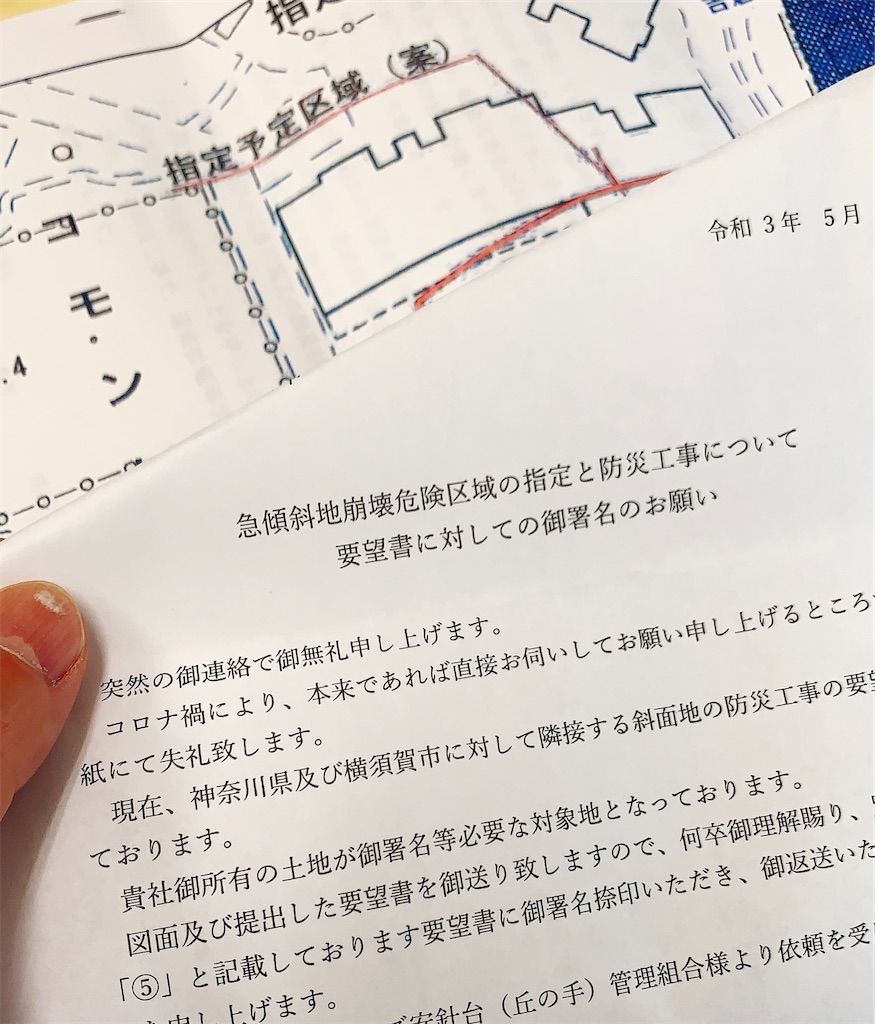 指定
指定予定区域（案）
コモン
.4
令和 3年 5月
急傾斜地崩壊危険区域の指定と防災工事について
要望書に対しての御署名のお願い
突然の御連絡で御無礼申し上げます。
コロナ禍により、本来であれば直接お伺いしてお願い申し上げるところ
紙にて失礼致します。
現在、神奈川県及び横須賀市に対して隣接する斜面地の防災工事の要望
ております。
貴社御所有の土地が御署名等必要な対象地となっております。
図面及び提出した要望書を御送り致しますので、何卒御理解賜り、
「⑤」と記載しております要望書に御署名捺印いただき、御返送いた
申し上げます。
ズ安針台（丘の手）管理組合様より依頼を受